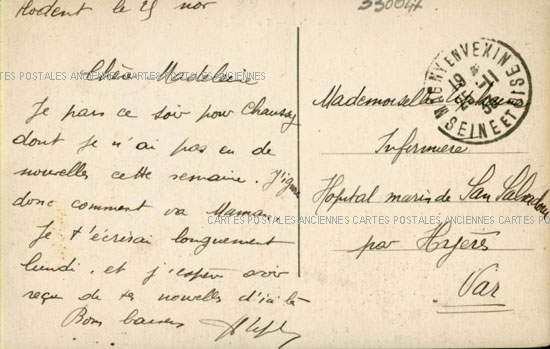 Hodent le 25 nov
330047
Chère Madeleine
Je pars ce soir pour Chaussy
dont je n'ai pas eu de
nouvelles cette semaine. J'ignore
donc comment va Maman.
Je t'écrirai longuement
lundi. et j'espère avoir
reçu de tes nouvelles d'ici là
Bons baisers
MAGNY EN VEXIN
SEINE ET OISE
Mademoiselle
Infirmière
Hopital marin de San Salvadour
par Hyères
Var
CARTES POSTALES ANCIENNES CARTES POSTALES ANCIENNES CARTES POSTALES ANCIENNES
CARTES POSTALES ANCIENNES CARTES POSTALES ANCIENNES